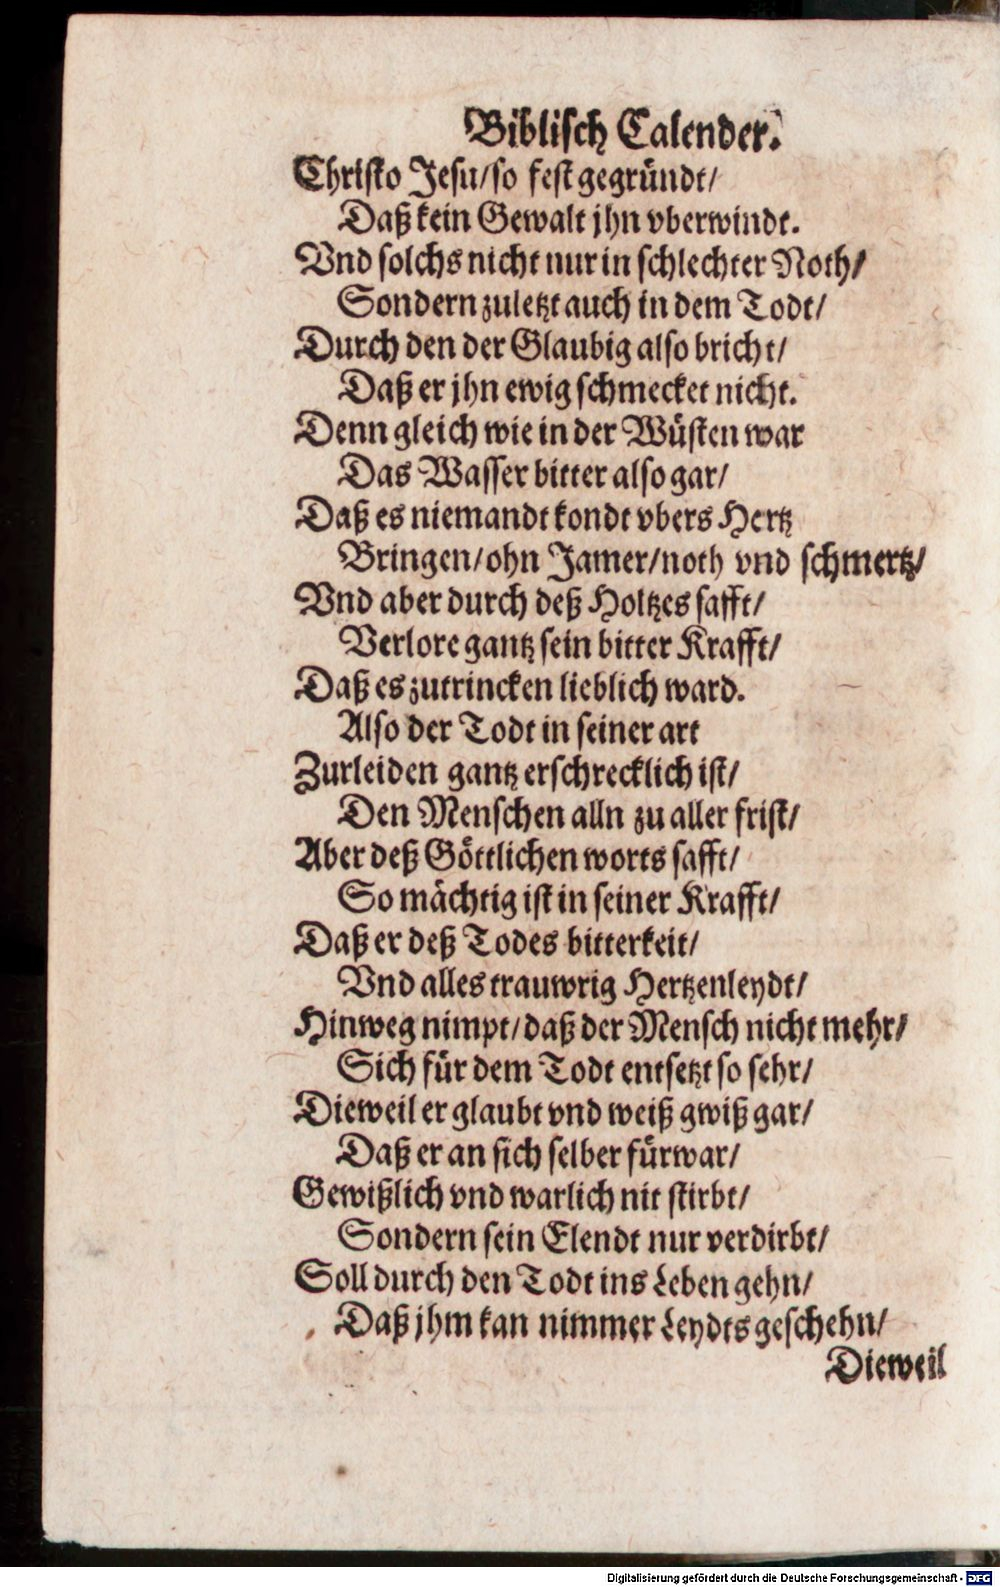 Biblisch Calender.
Christo Jesu/so fest gegründt/
Daß kein Gewalt jhn vberwindt.
Vnd solchs nicht nur in schlechter Noth/
Sondern zuletzt auch in dem Todt/
Durch den der Glaubig also bricht/
Daß er jhn ewig schmecket nicht.
Denn gleich wie in der Wüsten war
Das Wasser bitter also gar/
Daß es niemandt kondt vbers Hertz
Bringen/ohn Jamer/noth vnd schmertz/
Vnd aber durch deß Holtzes safft/
Verlore gantz sein bitter Krafft/
Daß es zutrincken lieblich ward.
Also der Todt in seiner art
Zurleiden gantz erschrecklich ist/
Den Menschen alln zu aller frist/
Aber deß Göttlichen worts safft/
So mächtig ist in seiner Krafft/
Daß er deß Todes bitterkeit/
Vnd alles trauwrig Hertzenleydt/
Hinweg nimpt/daß der Mensch nicht mehr/
Sich für dem Todt entsetzt so sehr/
Dieweil er glaubt vnd weiß gwiß gar/
Daß er an sich selber fürwar/
Gewißlich vnd warlich nit stirbt/
Sondern sein Elendt nur verdirbt/
Soll durch den Todt ins Leben gehn/
Daß jhm kan nimmer Leydts geschehn/
Dieweil
Digitalisierung gefördert durch die Deutsche Forschungsgemeinschaft - DFG